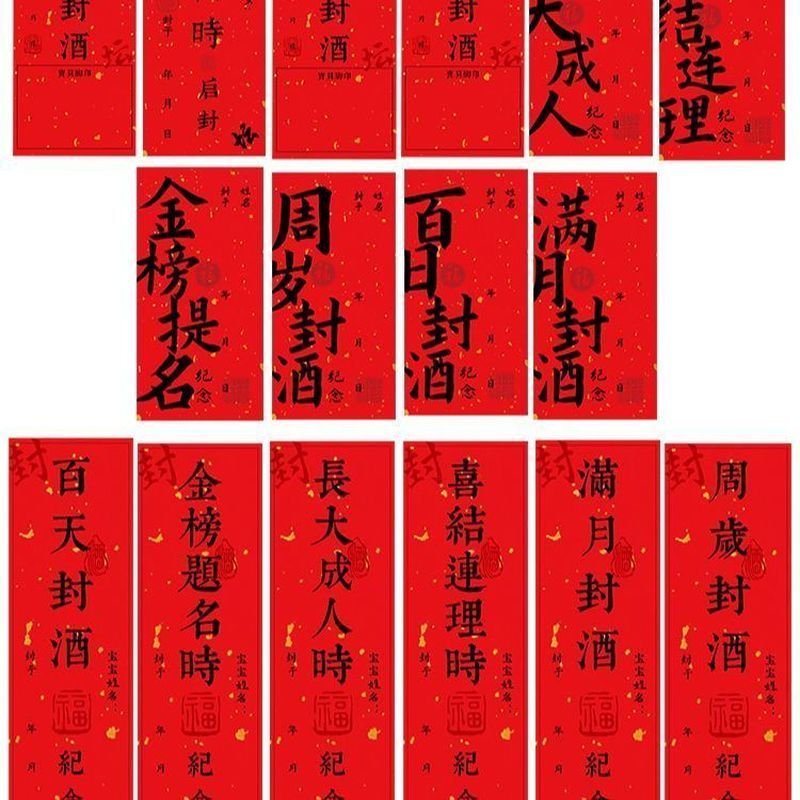 封酒
寶貝脚印
時
封于
啟封
年月日
坛
封酒
寶貝脚印
封酒
寶貝脚印
坛
大成人
纪念
年
月
日
结连理
纪念
年
月
日
金榜提名
纪念
姓名
封于
年
月
日
周岁封酒
纪念
姓名
封于
年
月
日
百日封酒
纪念
姓名
封于
年
月
日
满月封酒
纪念
姓名
封于
年
月
日
封
百天封酒
紀念
宝宝姓名:
封于
年
月
福
封
金榜題名時
紀念
宝宝姓名:
封于
年
月
福
封
長大成人時
紀念
宝宝姓名:
封于
年
月
福
封
喜結連理時
紀念
宝宝姓名:
封于
年
月
福
封
滿月封酒
紀念
宝宝姓名:
封于
年
月
福
封
周歲封酒
紀念
宝宝姓名:
封于
年
月
福